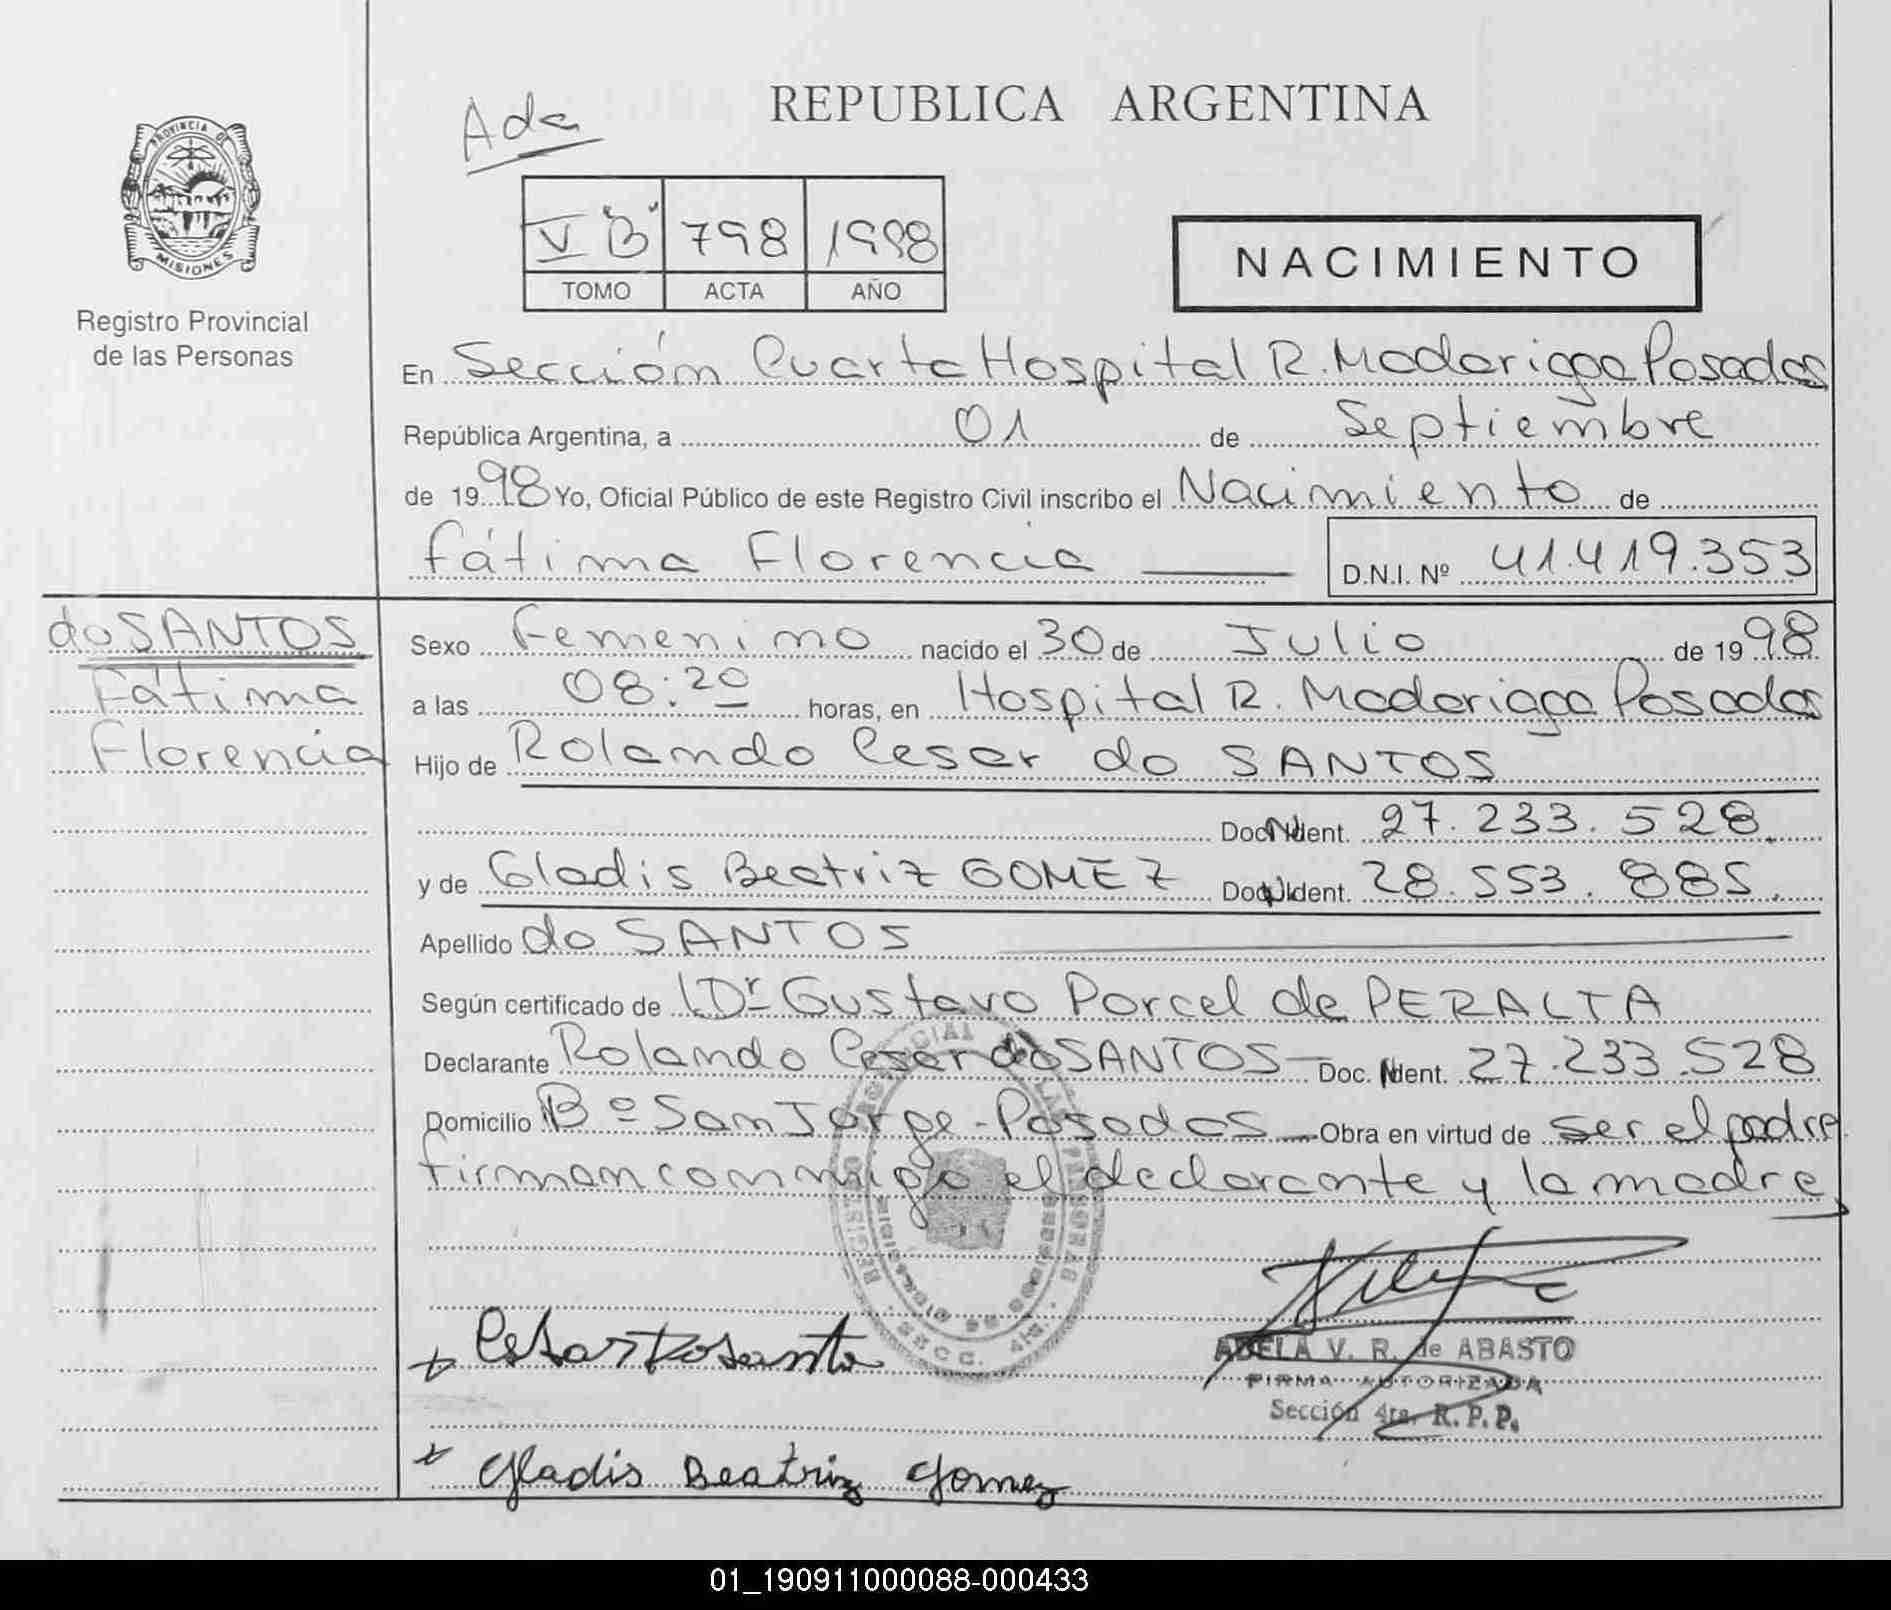 PROVINCIA DE
MISIONES
Registro Provincial
de las Personas
REPUBLICA ARGENTINA
Ada
V "B" 798 1998
TOMO ACTA AÑO
NACIMIENTO
En Sección Cuarta Hospital R. Madariaga Posadas
República Argentina, a 01 de Septiembre
de 1998 Yo, Oficial Público de este Registro Civil inscribo el Nacimiento de
Fátima Florencia D.N.I. Nº 41.419.353
do SANTOS
Fátima
Florencia
Sexo Femenino nacido el 30 de Julio de 1998
a las 08:20 horas, en Hospital R. Madariaga Posadas
Hijo de Rolando Cesar do SANTOS
Doc. Ident. 27.233.528.
y de Gladis Beatriz GOMEZ Doc. Ident. 28.553.885.
Apellido do SANTOS
Según certificado de Dr Gustavo Porcel de PERALTA
Declarante Rolando Cesar do SANTOS Doc. Ident. 27.233.528
Domicilio Bº San Jorge - Posadas Obra en virtud de ser el padre
firman conmigo el declarante y la madre
ADELA V. R. de ABASTO
FIRMA AUTORIZADA
Sección 4ta. R. P. P.
+ Cesar Dosanto
+ Gladis Beatriz Gomez
01_190911000088-000433